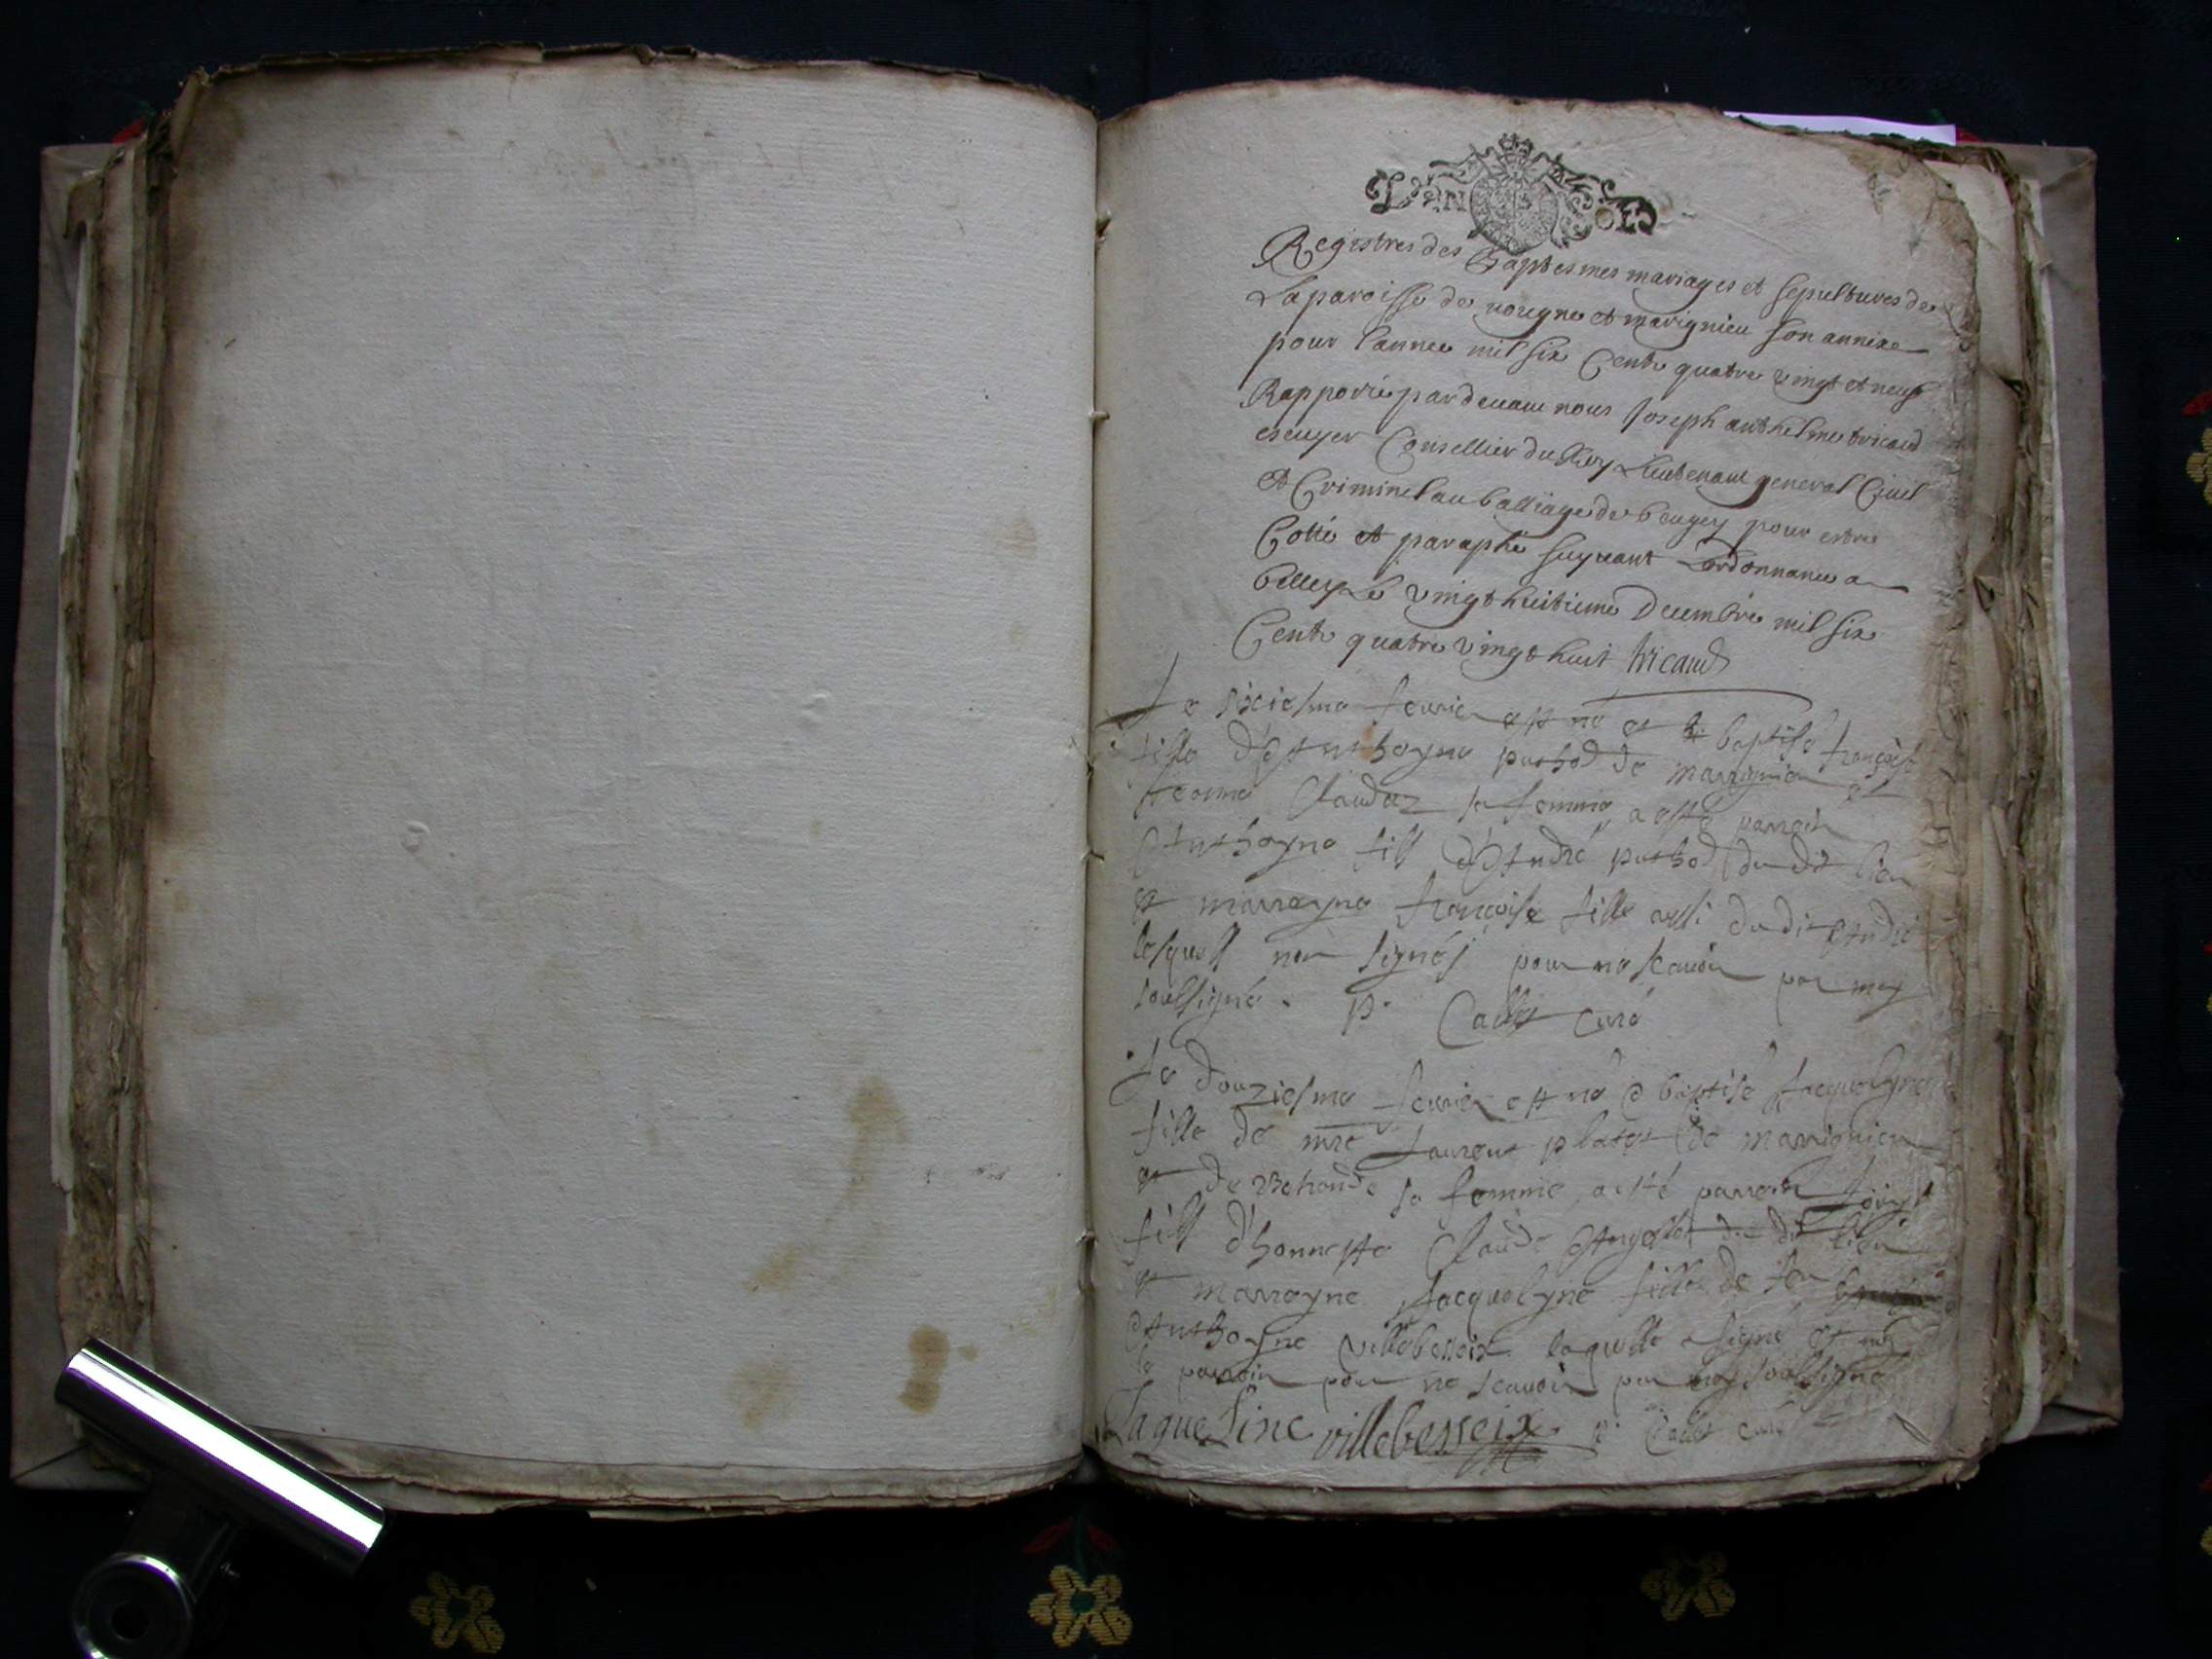 Registres des Baptesmes mariages et sepultures de
La paroisse de rougne et marignieu son annexe
pour l'annee mil six Cents quatre vingt et neuf
Rapporté pardeuant nous Joseph anthelme tricaud
escuyer Conseillier du Roy Lieutenant general Ciuil
et Criminel au balliage de beugey pour estre
Cotté et paraphé suyuant Lordonnance a
belley Le vingt huitieme Decembre mil six
Cents quatre vingt huit tricaud
Le sixiesme feurier est né et baptisé françoise
fille d'Anthoyne puthod de marignieu et
Claudaz sa femme, a esté parrain
Anthoyne fils d'André puthod du dit lieu
et marrayne françoise fille aussi du dit André
lesquels non signés pour ne scauoir par moy
soulsigné. p. Callet curé
Le douziesme feurier est né et baptisé Jacquelyne
fille de mre Laurent de marignieu
et de sa femme, a esté parrain
fils d'honneste Claude du dit lieu
et marrayne Jacquelyne fille de feu
Anthoyne villebesseix laquelle a signé et non
le parrain pour ne scauoir par moy soulsigné
Jaqueline villebesseix p. Callet curé